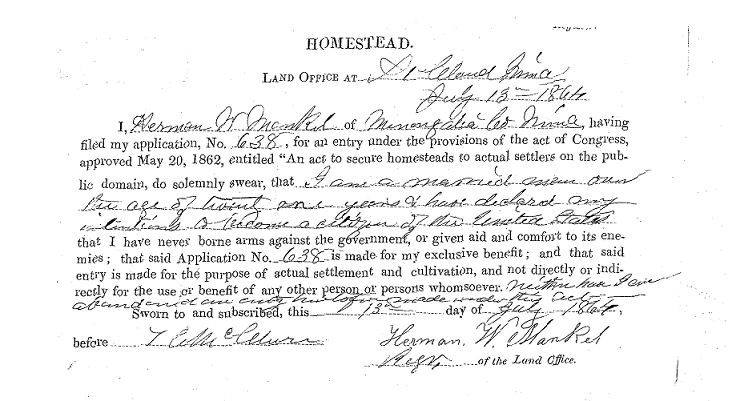 HOMESTEAD.
LAND OFFICE AT St Cloud Minn
July 13th 1864
I, Herman W Mankel of Co Minn, having
filed my application, No. 638, for an entry under the provisions of the act of Congress,
approved May 20, 1862, entitled "An act to secure homesteads to actual settlers on the pub-
lic domain, do solemnly swear, that I am a married man over
the age of twent one years & have declared my
intentions to become a citizen of the United States
that I have never borne arms against the government, or given aid and comfort to its ene-
mies; that said Application No. 638 is made for my exclusive benefit; and that said
entry is made for the purpose of actual settlement and cultivation, and not directly or indi-
rectly for the use or benefit of any other person or persons whomsoever. Neither have I ever
abandoned an entry heretofore made under this act
Sworn to and subscribed, this 13th day of July 1864,
before T C McClure Herman. W. Mankel
Regr, of the Land Office.